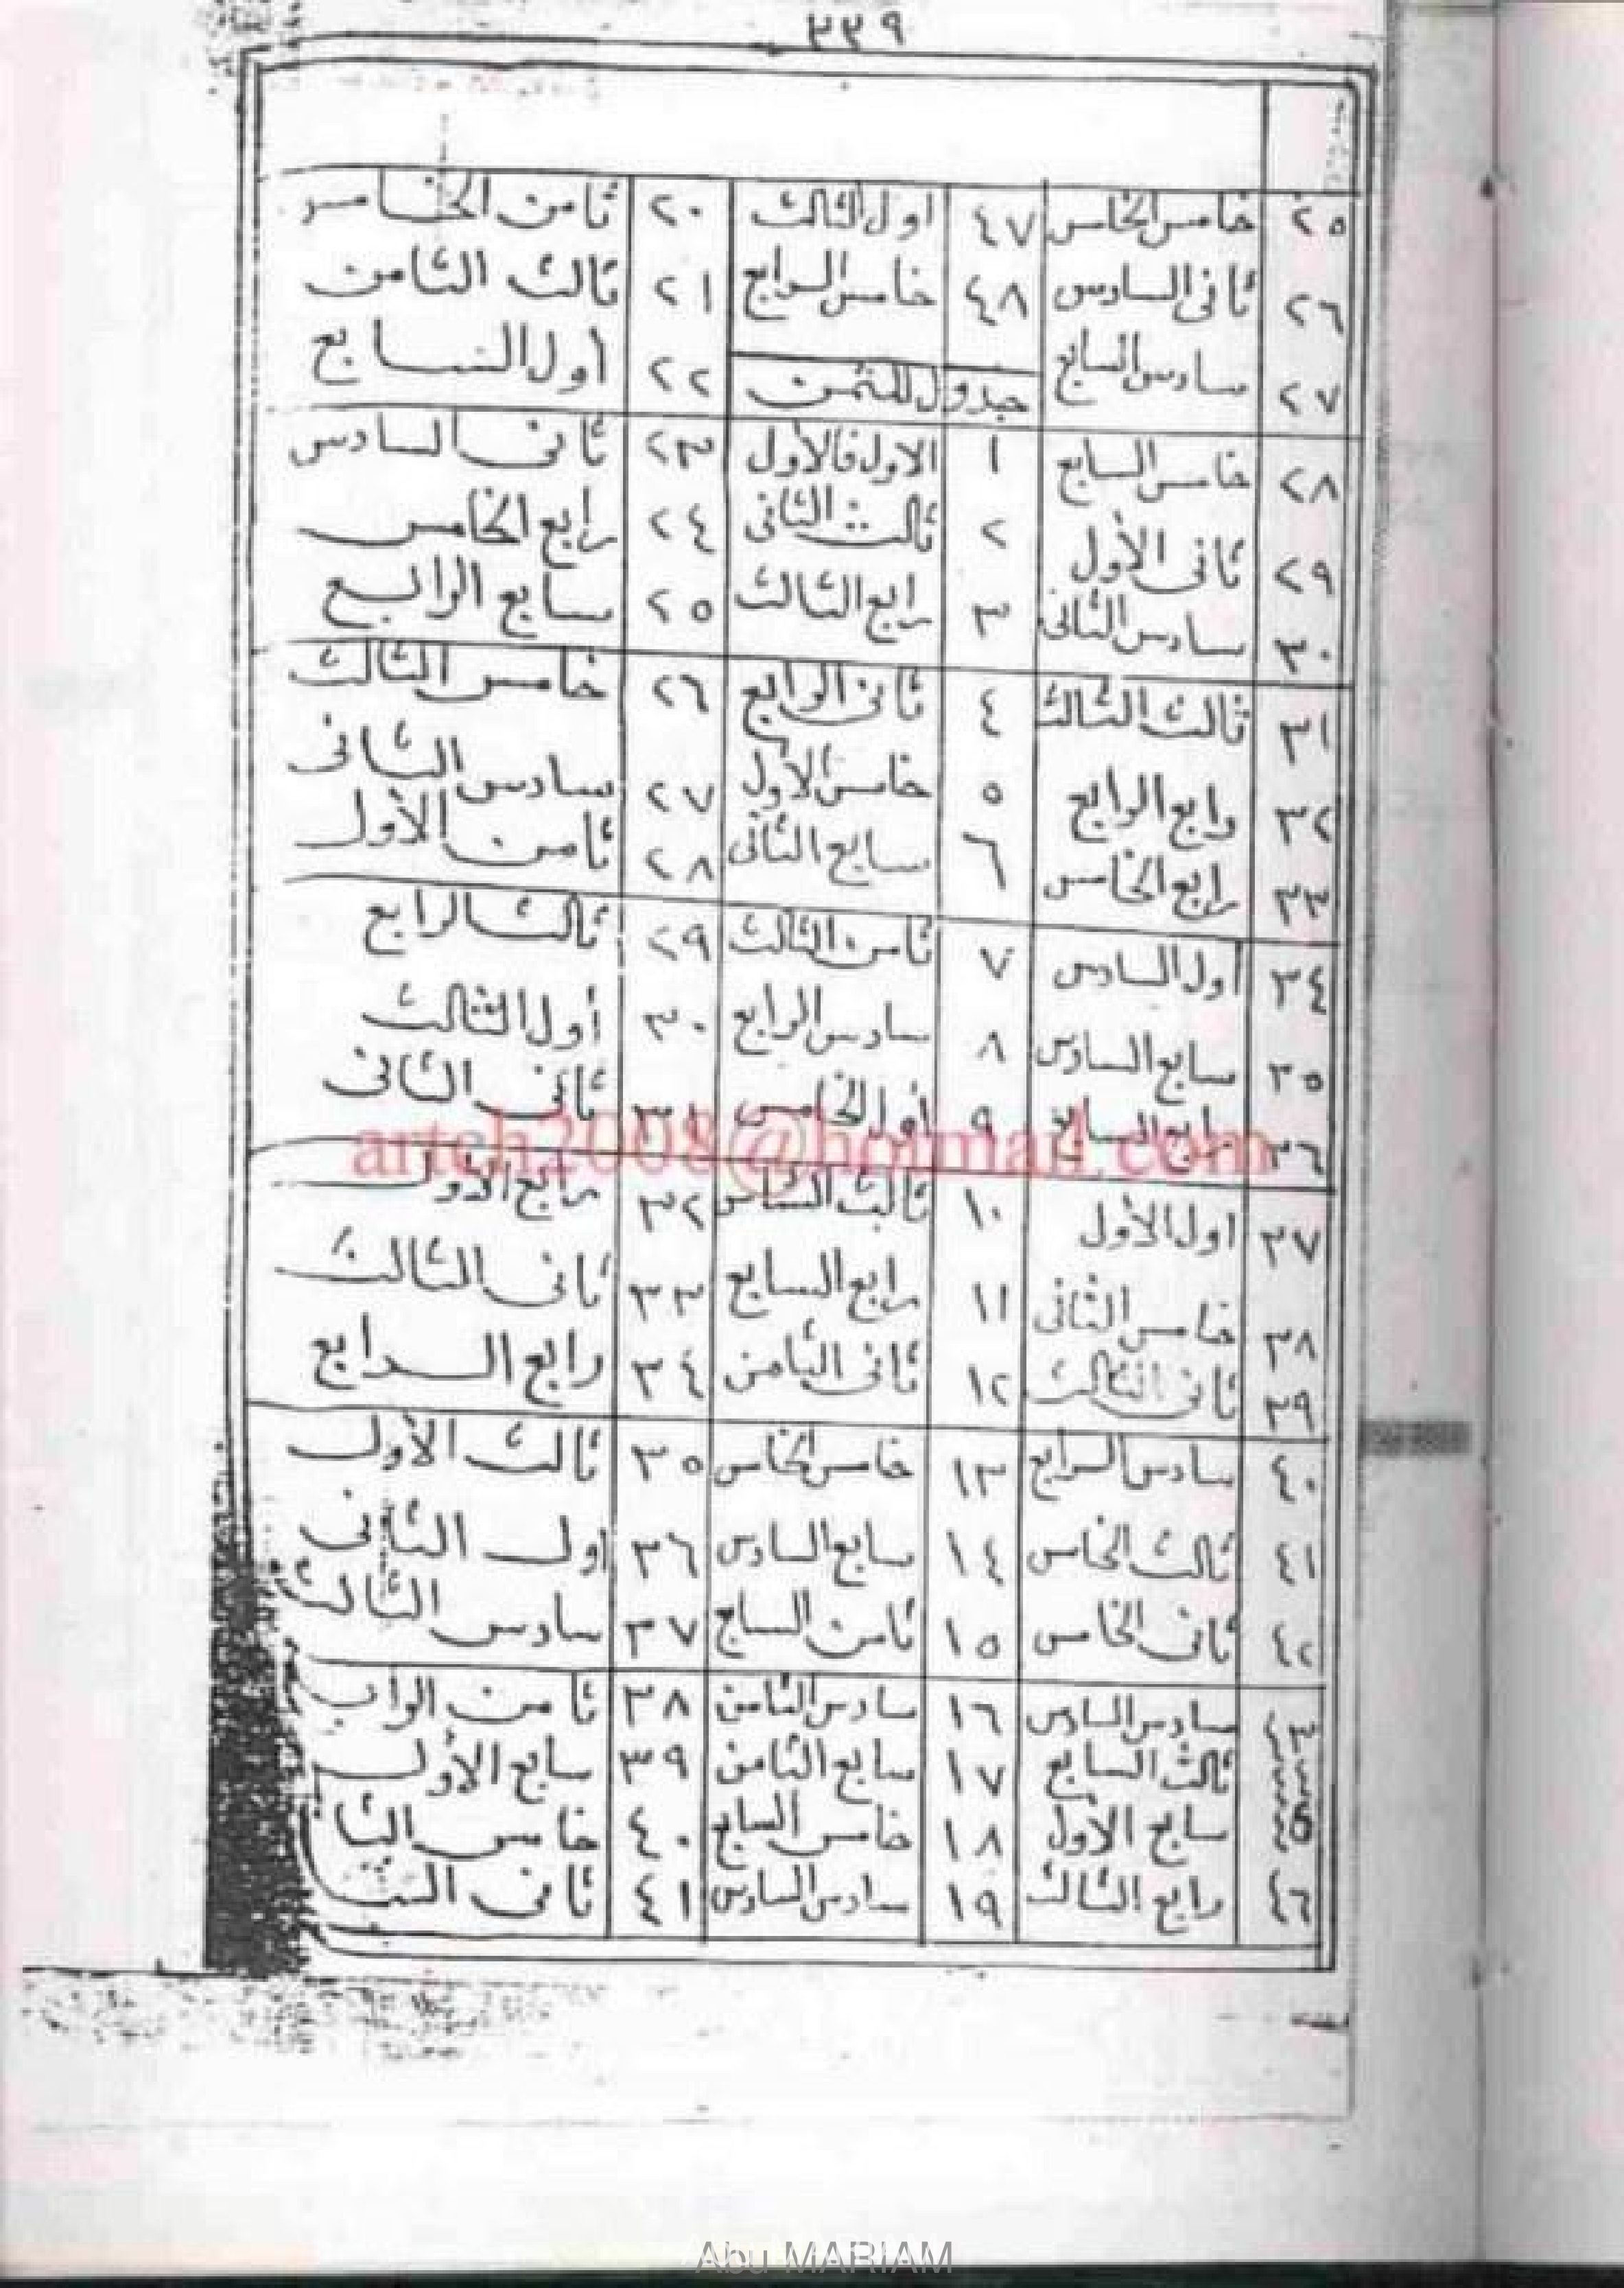 ٣٣٩
٢٥ خامس الخامس ٤٧ اول الثالث ٢٠ ثامن الخامس
٢٦ ثانى السادس ٤٨ خامس الرابع ٢١ ثالث الثامن
٢٧ سادس السابع جدول المثمن ٢٢ اول السابع
٢٨ خامس السابع ١ الاول فالأول ٢٣ ثانى السادس
٢٩ ثانى الأول ٢ ثالث الثانى ٢٤ رابع الخامس
٣٠ سادس الثانى ٣ رابع الثالث ٢٥ سابع الرابع
٣١ ثالث الثالث ٤ ثانى الرابع ٢٦ خامس الثالث
٣٢ رابع الرابع ٥ خامس الأول ٢٧ سادس الثانى
٣٣ رابع الخامس ٦ سابع الثانى ٢٨ ثامن الأول
٣٤ أول السادس ٧ ثامن الثالث ٢٩ ثالث الرابع
٣٥ سابع السادس ٨ سادس الرابع ٣٠ أول الثالث
٣٦ رابع ٩ أول الخامس ٣١ ثانى الثانى
arteh2008@hotmail.com
٣٧ اول الأول ١٠ ثالث السادس ٣٢ رابع الأول
٣٨ خامس الثانى ١١ رابع السابع ٣٣ ثانى الثالث
٣٩ ثانى الثالث ١٢ ثانى الثامن ٣٤ رابع الرابع
٤٠ سادس الرابع ١٣ خامس الخامس ٣٥ ثالث الأول
٤١ ثالث الخامس ١٤ سابع السادس ٣٦ اول الثانى
٤٢ ثانى الخامس ١٥ ثامن السابع ٣٧ سادس الثالث
٤٣ سادس السادس ١٦ سادس الثامن ٣٨ ثامن الراب
ثالث السابع ١٧ سابع الثامن ٣٩ سابع الأول
سابع الأول ١٨ خامس السابع ٤٠ خامس الثا
٤٦ رابع الثالث ١٩ سادس السادس ٤١ ثانى
Abu MARIAM